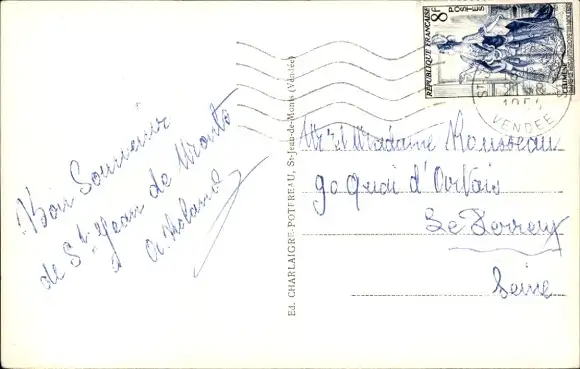 Bon Souvenir
de St. Jean de Monts
Ed. CHARLAIGRE-POTEREAU, St-Jean-de-Monts (Vendée)
RÉPUBLIQUE FRANÇAISE
8F
POSTES
VENDEE
Mr et Madame Rousseau
90 Quai d'Artois
Le Perreux
Seine